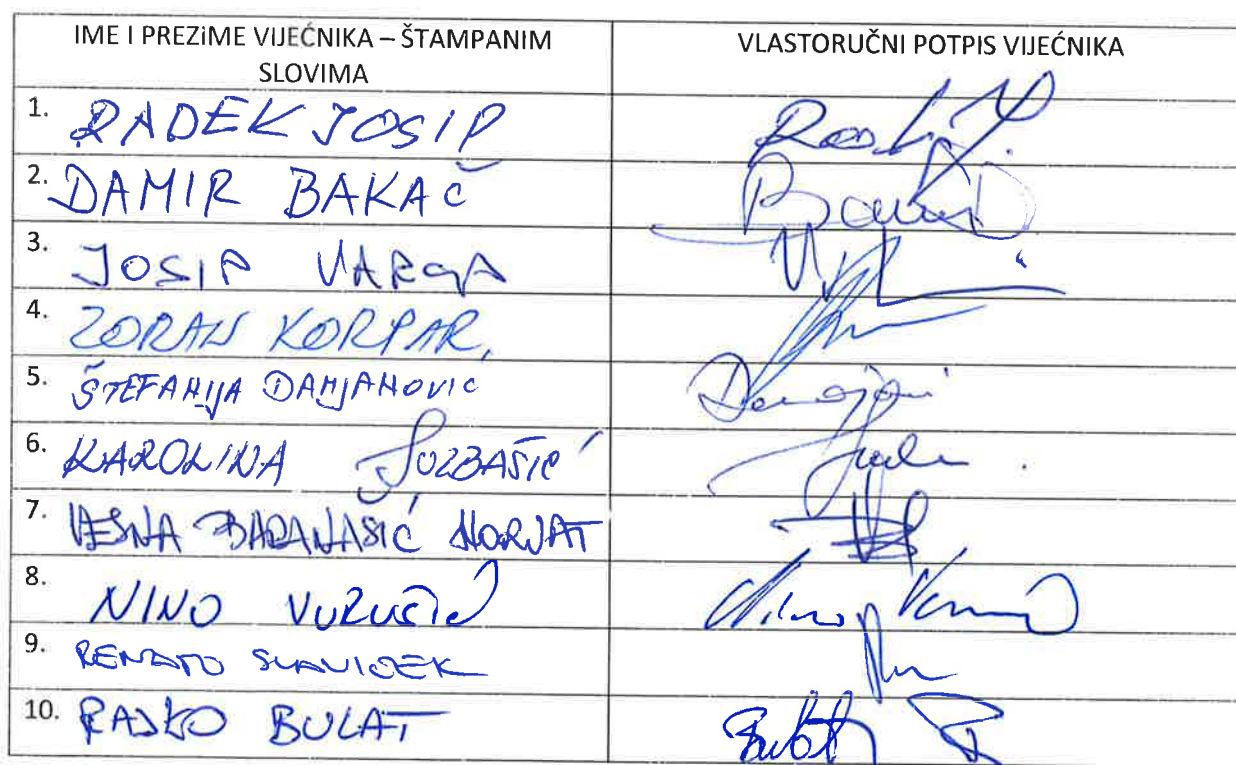 IME I PREZIME VIJEĆNIKA – ŠTAMPANIM SLOVIMA
VLASTORUČNI POTPIS VIJEĆNIKA
1. RADEK JOSIP
2. DAMIR BAKAČ
3. JOSIP VARGA
4. ZORAN KORPAR,
5. ŠTEFANIJA DAMJANOVIC
6. KAROLINA JUZBAŠIĆ
7. VESNA BARANAŠIĆ HORVAT
8. NINO VURUŠIĆ
9. RENATO SLAVIČEK
10. RAJKO BULAT